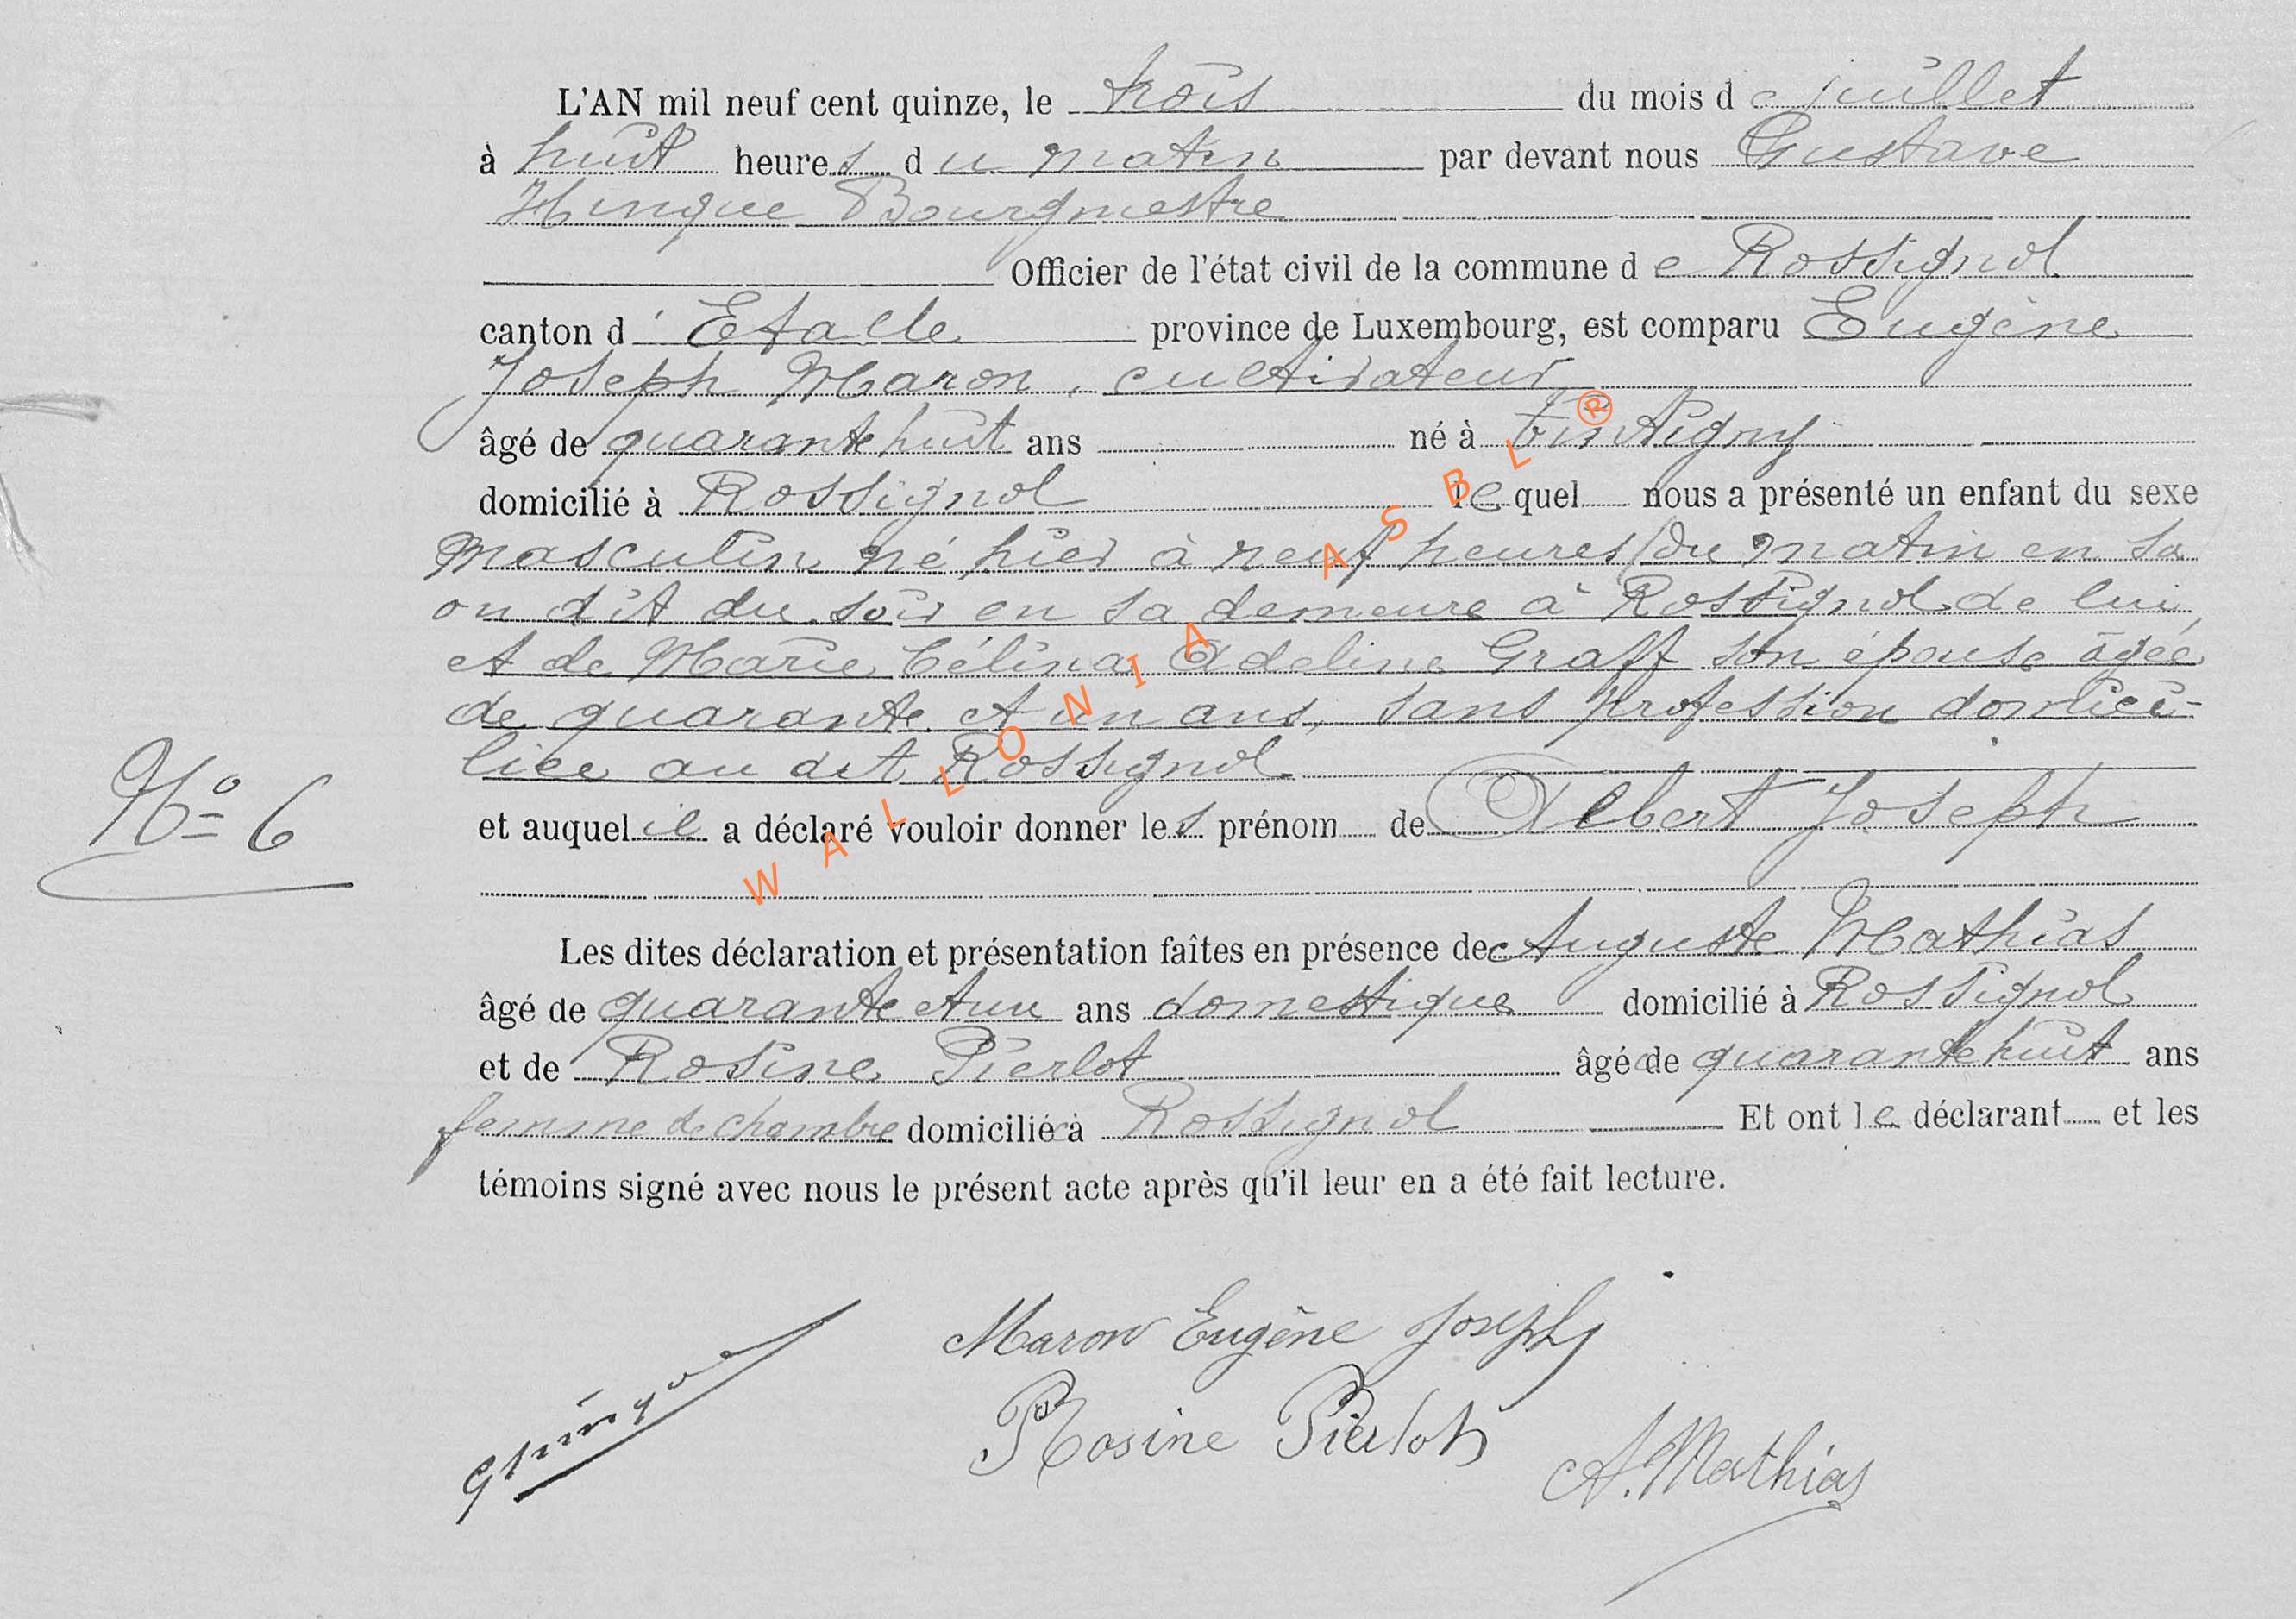 L'AN mil neuf cent quinze, le trois du mois de juillet
à huit heures du matin par devant nous Gustave
Hinque Bourgmestre
Officier de l'état civil de la commune de Rossignol
canton d'Etalle province de Luxembourg, est comparu Eugène
Joseph Maron, cultivateur
âgé de quarante huit ans né à Tintigny
domicilié à Rossignol lequel nous a présenté un enfant du sexe
masculin né hier à neuf heures (du matin en sa
on dit du soir en sa demeure à Rossignol de lui,
et de Marie Célina Adeline Graff son épouse âgée
de quarante et un ans, sans profession domici-
liée au dit Rossignol
N° 6
et auquel il a déclaré vouloir donner les prénom de Albert Joseph
Les dites déclaration et présentation faîtes en présence de Auguste Mathias
âgé de quarante et un ans domestique domicilié à Rossignol
et de Rosine Pierlot âgée de quarante huit ans
femme de chambre domiciliée à Rossignol Et ont le déclarant et les
témoins signé avec nous le présent acte après qu'il leur en a été fait lecture.
Maron Eugène Joseph
Rosine Pierlot
A. Mathias
WALLONIA ASBL ®